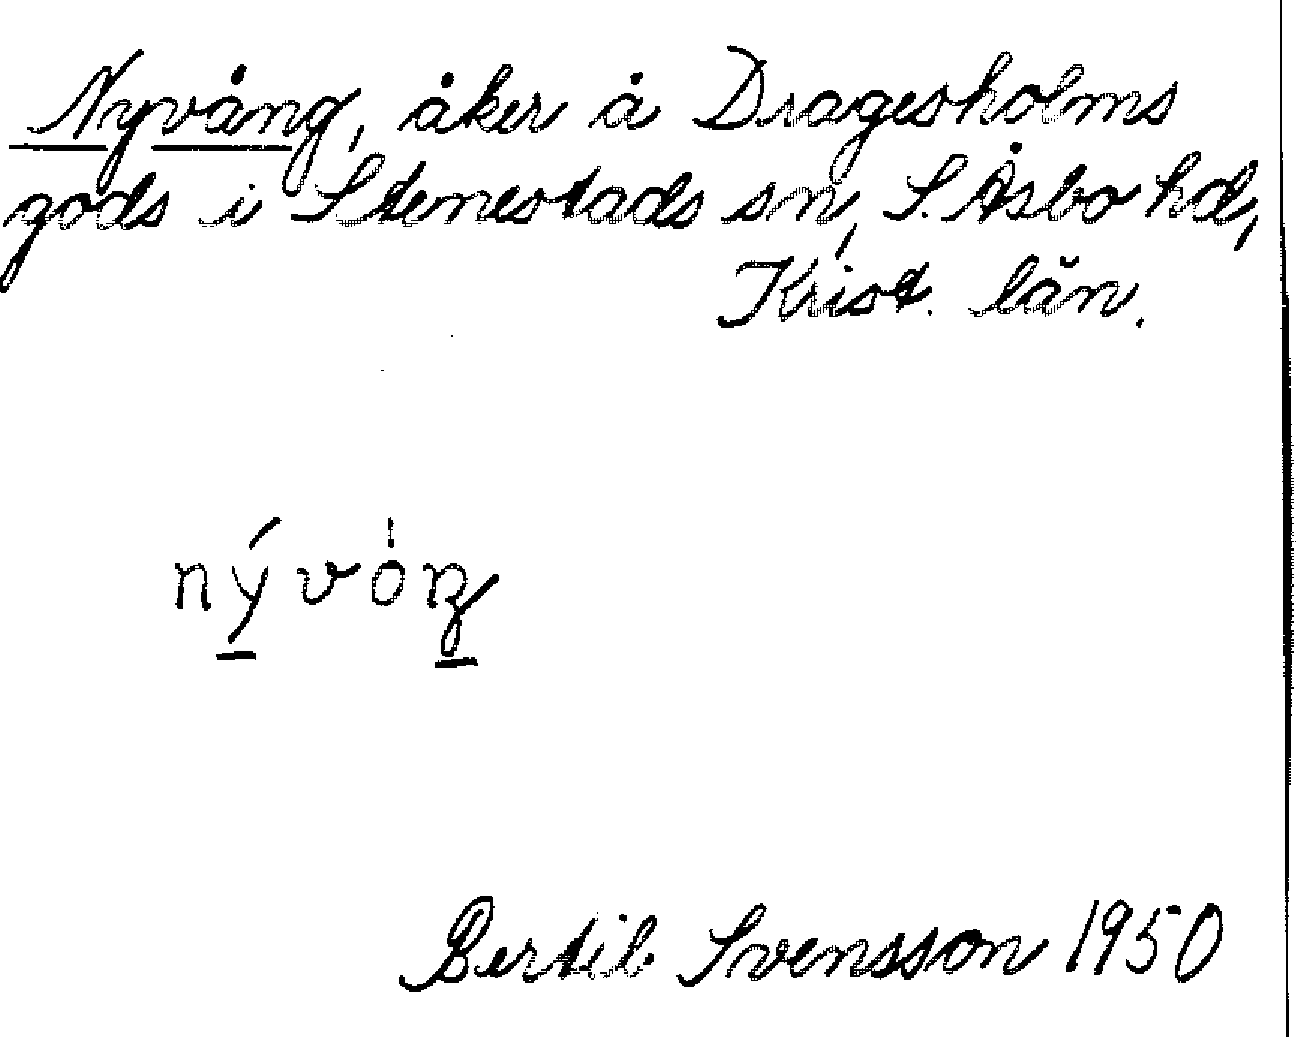 Nyvång, åker å Dragesholms
gods i Stenestads sn, S. Åsbo hd,
Krist. län.
nývóŋ
Bertil Svensson 1950